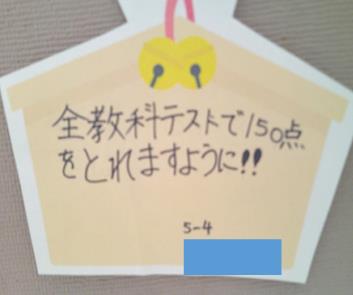 全教科テストで150点
をとれますように!!
5-4